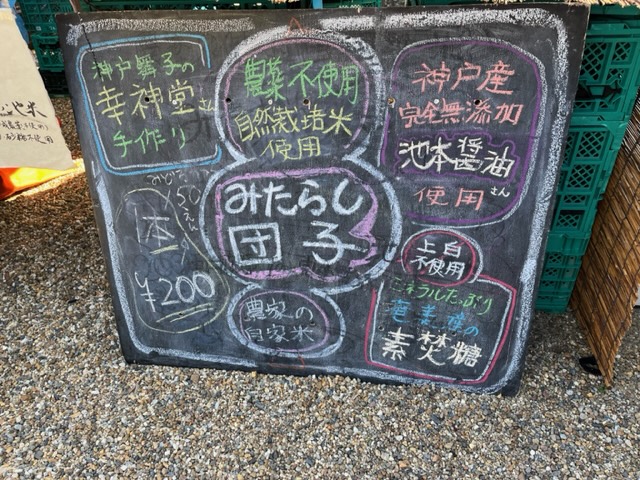 神戸舞子の
幸神堂さん
手作り
農薬不使用
自然栽培米
使用
神戸産
完全無添加
池本醤油さん
使用
みたらし
団子
一本
¥200
農家の
自家米
上白
不使用
ミネラルたっぷり
奄美産の
素焚糖